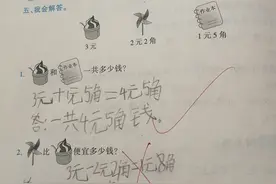 五、我会解答。
作业本
3元 2元2角 1元5角
1. 和 作业本 一共多少钱？
3元+1元5角=4元5角
答：一共4元5角钱。
2. 比 便宜多少钱？
3元-2元2角=1元8角